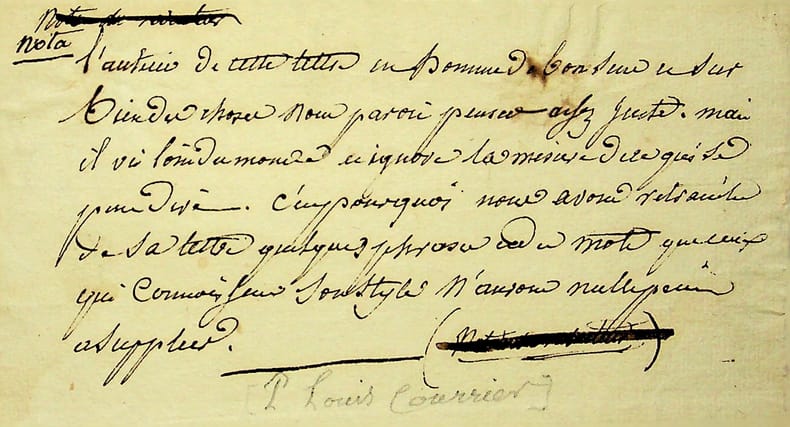 Note du rédacteur
Nota
l'auteur de cette lettre est homme de bon sens et sur
bien des choses nous paroit penser assez juste. mais
il vit loin du monde et ignore la mesure de ce qui se
peut dire. c'est pourquoi nous avons retranché
de sa lettre quelques phrases et des mots que ceux
qui connoissent son style n'auront nulle peine
a suppléer.
(Note du rédacteur)
[P Louis Courrier]